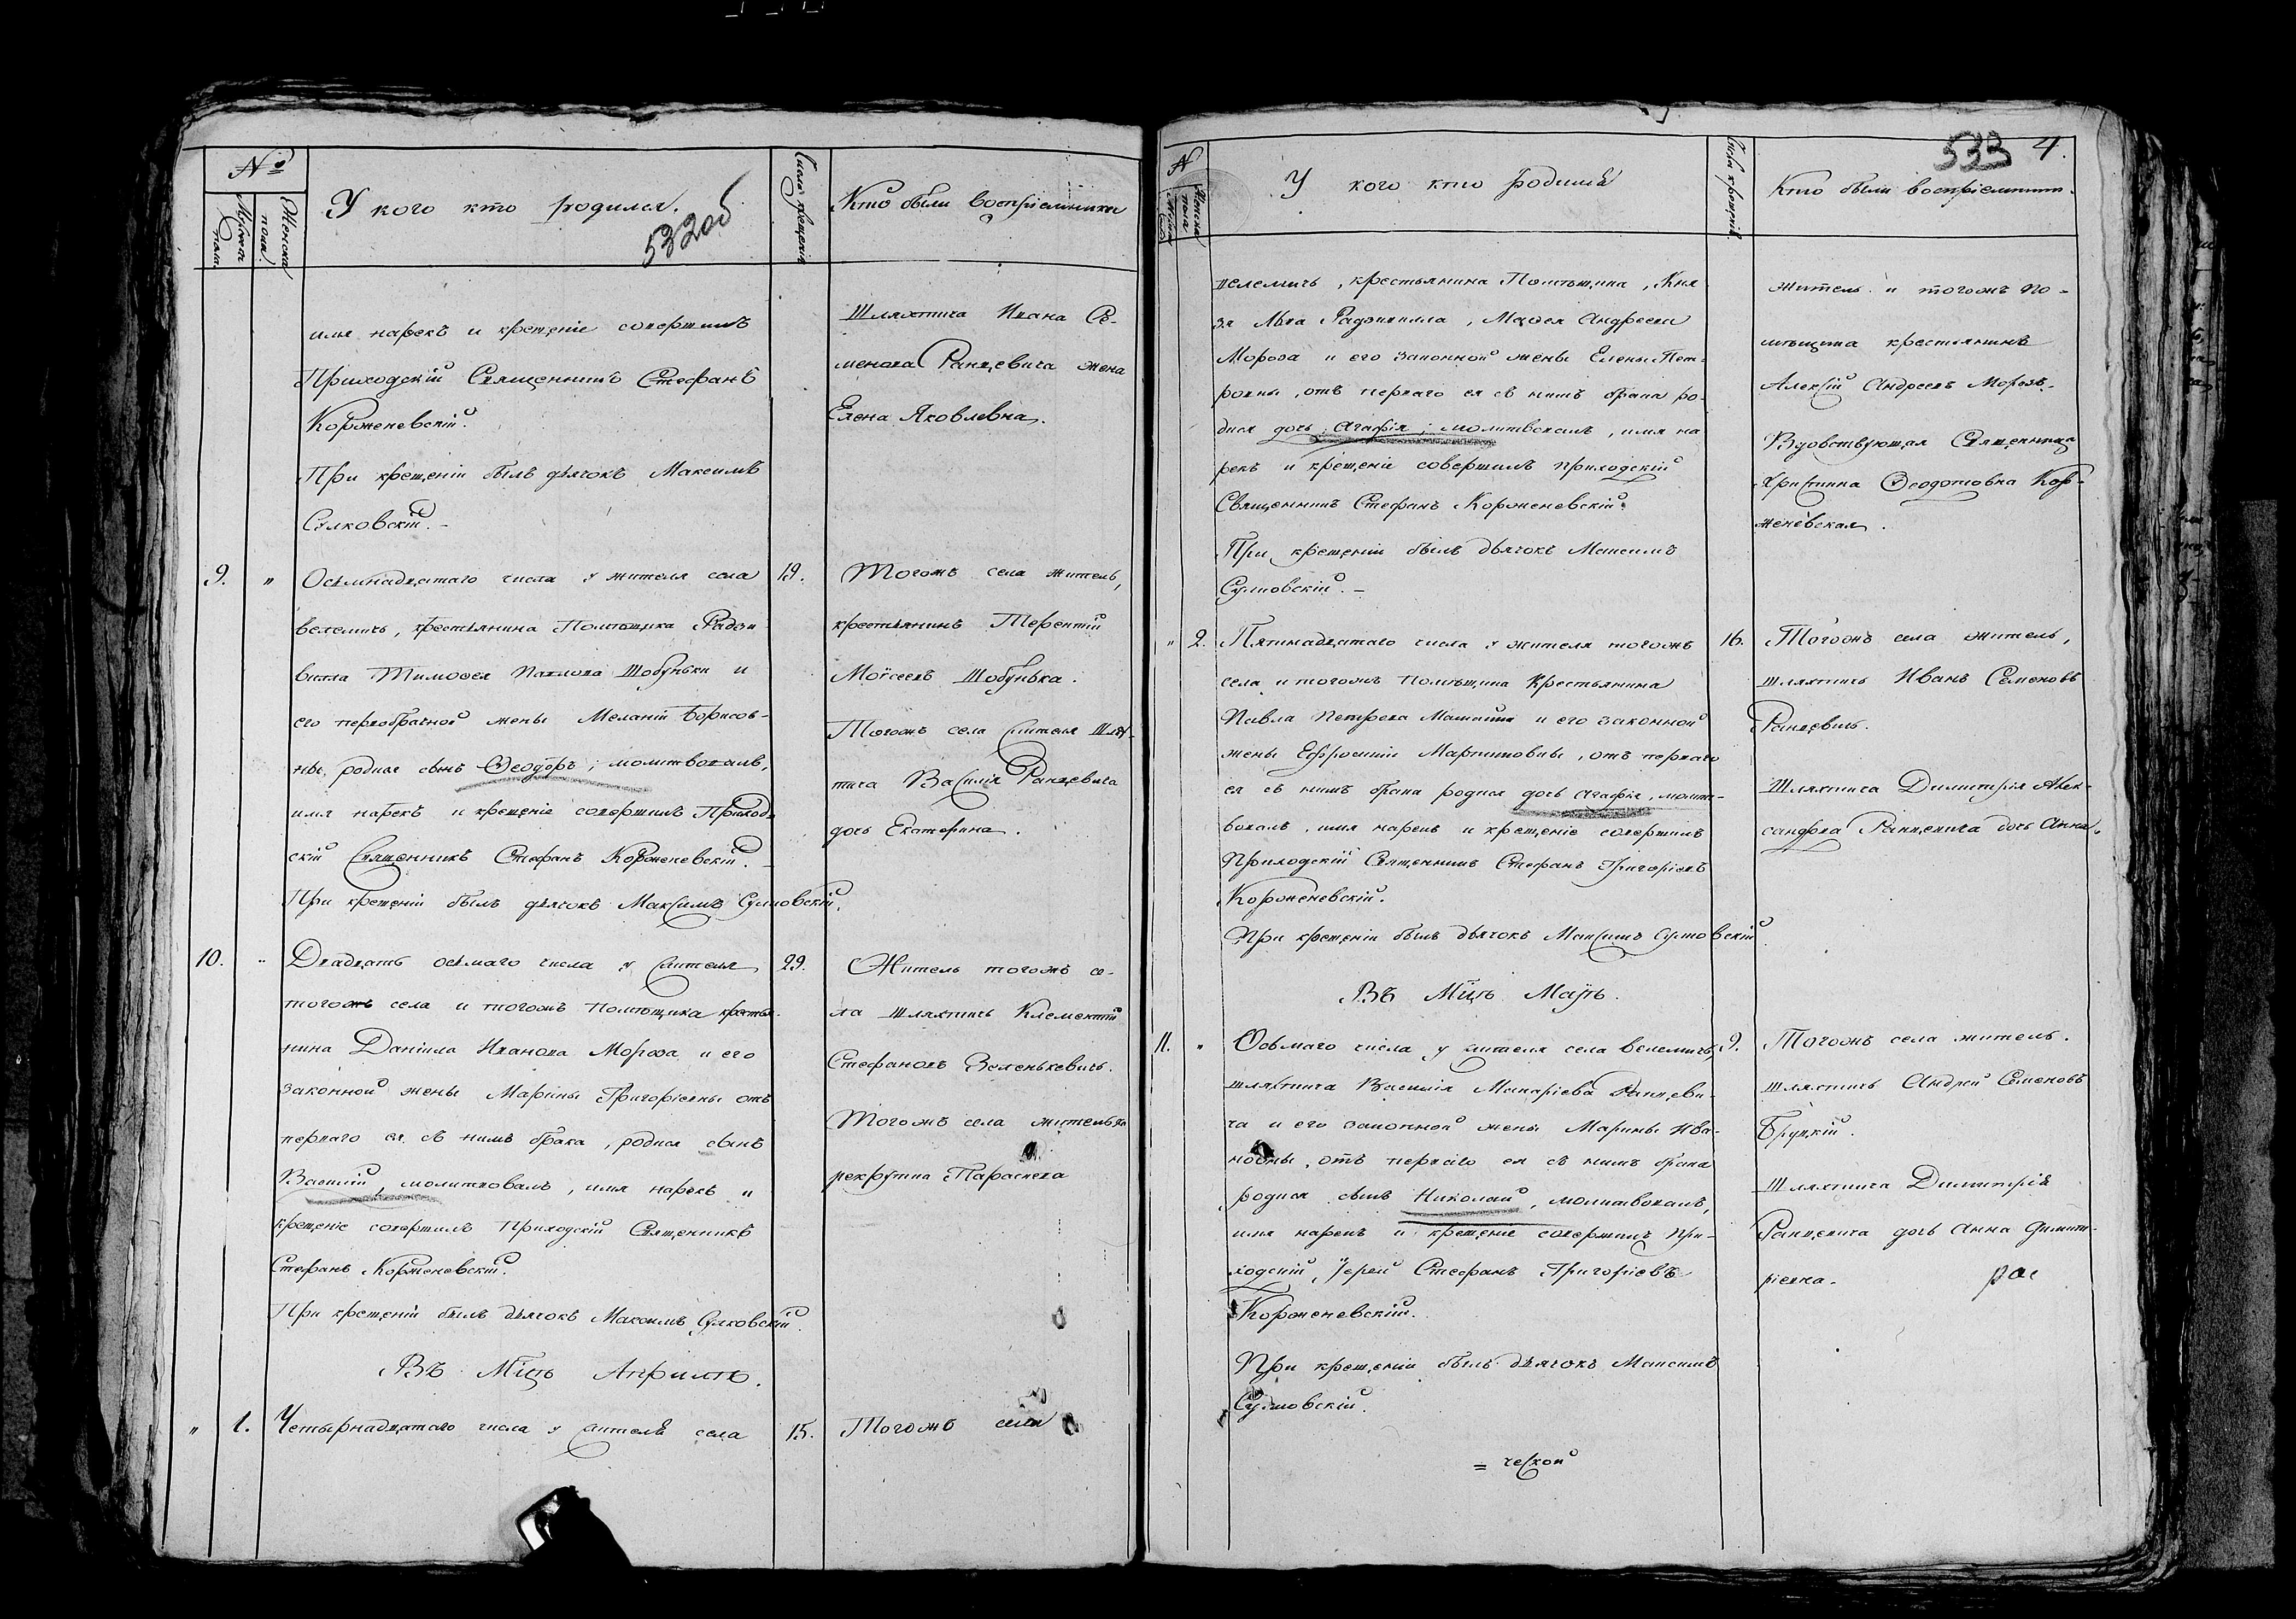 №
Мужеска пола.
Женска пола.
У кого кто родился.
532об
Числа крещенія
Кто были воспріемники
имя нарекъ и крещеніе совершилъ
Приходскій Священникъ Стефанъ
Корженевскій.
При крещеніи былъ дьячокъ Максимъ
Сулковскій. –
Шляхтича Ивана Се-
менова Ранцевича жена
Елена Яковлевна.
9. „ Осемнадцатаго числа у жителя села 19.
велемичь, крестьянина Помѣщика Радзи
вилла Тимофея Павлова Шобунька и
его первобрачной жены Меланіи Борисов-
ны, родися сынъ Ѳеодоръ; молитвовалъ,
имя нарекъ и крещеніе совершилъ Приход-
скій Священникъ Стефанъ Корженевскій. –
При крещеніи былъ дьячокъ Максимъ Сулковскій.
Тогожъ села житель,
крестьянинъ Терентій
Моѵсеевъ Шобунька.
Тогожъ села жителя Шлях-
тича Василія Ранцевича
дочь Екатерина.
10. „ Двадцать осьмаго числа у жителя 29.
тогожъ села и тогожъ Помѣщика крестья-
нина Даніила Иванова Мороза и его
законной жены Марины Григоріевны отъ
перваго ея съ нимъ брака, родися сынъ
Василій, молитвовалъ, имя нарекъ и
крещеніе совершилъ Приходскій Священникъ
Стефанъ Корженевскій.
При крещеніи былъ дьячокъ Максимъ Сулковскій.
Житель тогожъ се-
ла шляхтичь Климентій
Стефановъ Зеленькевичь.
Тогожъ села жительз
рекрутка Параскева
Въ Мцѣ Априлѣ.
„ 1. Четырнадцатаго числа у жителя села 15. Тогожъ села
№
Женска пола
У кого кто родился
Числа крещенія.
533 4.
Кто были воспріемники.
велемичь, крестьянина Помѣщика, Кня
зя Льва Радзивилла, Моѵсея Андреева
Мороза и его законной жены Елены Пет-
ровны, отъ перваго ея съ нимъ брака ро-
дися дочь; Агафія; молитвовалъ, имя на
рекъ и крещеніе совершилъ приходскій
Священникъ Стефанъ Корженевскій.
При крещеніи былъ дьячокъ Максимъ
Сулковскій. –
житель и тогожъ по-
мѣщика крестьянинъ
Алексій Андреевъ Морозъ.
Вдовствующая Священница
Христина Ѳеодотовна Кор-
женевская.
„ 2. Пятинадцатаго числа у жителя тогожъ 16.
села и тогожъ помѣщика Крестьянина
Павла Петрова и его законной
жены Ефросиніи Мартиновны, отъ перваго
ея съ нимъ брака родися дочь Агафія, молит-
вовалъ, имя нарекъ и крещеніе совершилъ
Приходскій Священникъ Стефанъ Григоріевъ
Корженевскій.
При крещеніи былъ дьячокъ Максимъ Сулковскій.
Тогожъ села житель,
шляхтичь Иванъ Семеновъ
Ранцевичь.
Шляхтича Димитрія Алек-
сандрова Ранцевича дочь Анна.
Въ Мцѣ Маѣ.
11. „ Осьмаго числа у жителя села велемичь, 9.
шляхтича Василія Макаріева Ранцеви-
ча и его законной жены Марины Ива-
новны, отъ перваго ея съ нимъ брака
родися сынъ Николай, молитвовалъ,
имя нарекъ и крещеніе совершилъ При-
ходскій, Іерей Стефанъ Григоріевъ
Корженевскій.
При крещеніи былъ дьячокъ Максимъ
Сулковскій.
Тогожъ села житель.
шляхтичь Андрей Семеновъ
Бруцкій.
Шляхтича Димитрія
Ранцевича дочь Анна Димит-
ріевна.
рос
= ческой